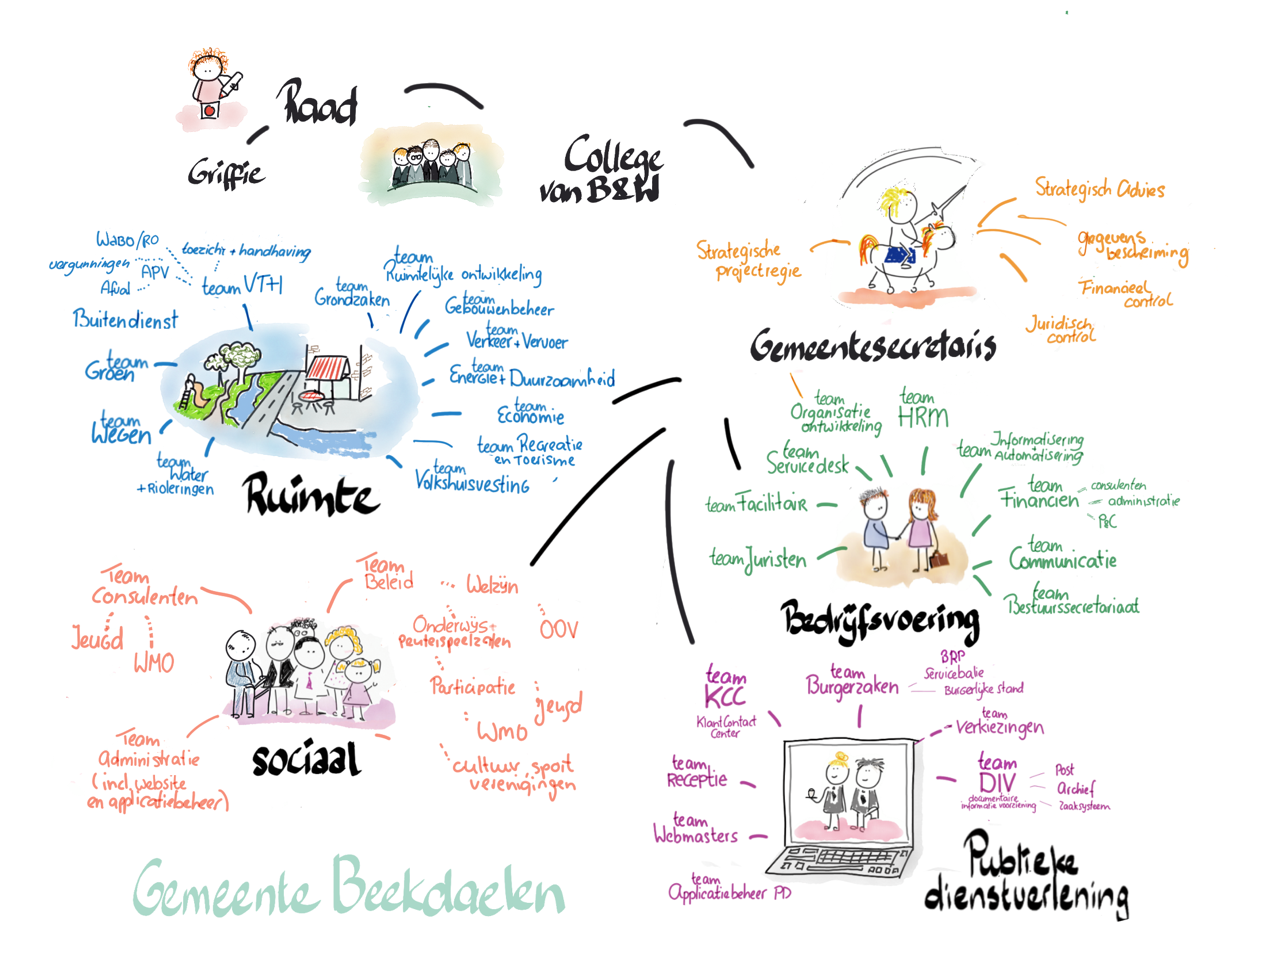 Raad
Griffie
College
van B&W
Strategisch Advies
gegevens
bescherming
Financieel
control
Juridisch
control
Strategische
projectregie
Gemeentesecretaris
WABO/RO
vergunningen
APV
Afval
toezicht + handhaving
team VTH
Buitendienst
team
Groen
team
Wegen
team
Water
+ Rioleringen
team
Grondzaken
team
Ruimtelijke ontwikkeling
team
Gebouwenbeheer
team
Verkeer + Vervoer
team
Energie + Duurzaamheid
team
Economie
team Recreatie
en Toerisme
team
Volkshuisvesting
Ruimte
team
Organisatie
ontwikkeling
team
HRM
team
Servicedesk
team Facilitair
team Juristen
team Informatisering
Automatisering
team
Financiën
consulenten
administratie
P&C
team
Communicatie
team
Bestuurssecretariaat
Bedrijfsvoering
Team
Consulenten
Jeugd
WMO
Team
Beleid
Welzijn
Onderwijs +
Peuterspeelzalen
OOV
Participatie
Jeugd
WMO
cultuur, sport
verenigingen
Team
Administratie
(incl. website
en applicatiebeheer)
sociaal
team
KCC
KlantContact
Center
team
Burgerzaken
BRP
Servicebalie
Burgerlijke stand
team
Verkiezingen
team
Receptie
team
DIV
documentaire
informatie voorziening
Post
Archief
Zaaksysteem
team
Webmasters
team
Applicatiebeheer PD
Publieke
dienstverlening
Gemeente Beekdaelen